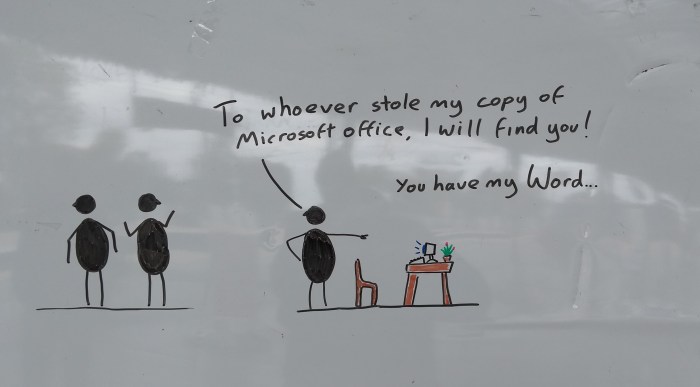 To whoever stole my copy of
Microsoft office, I will find you!
You have my Word...